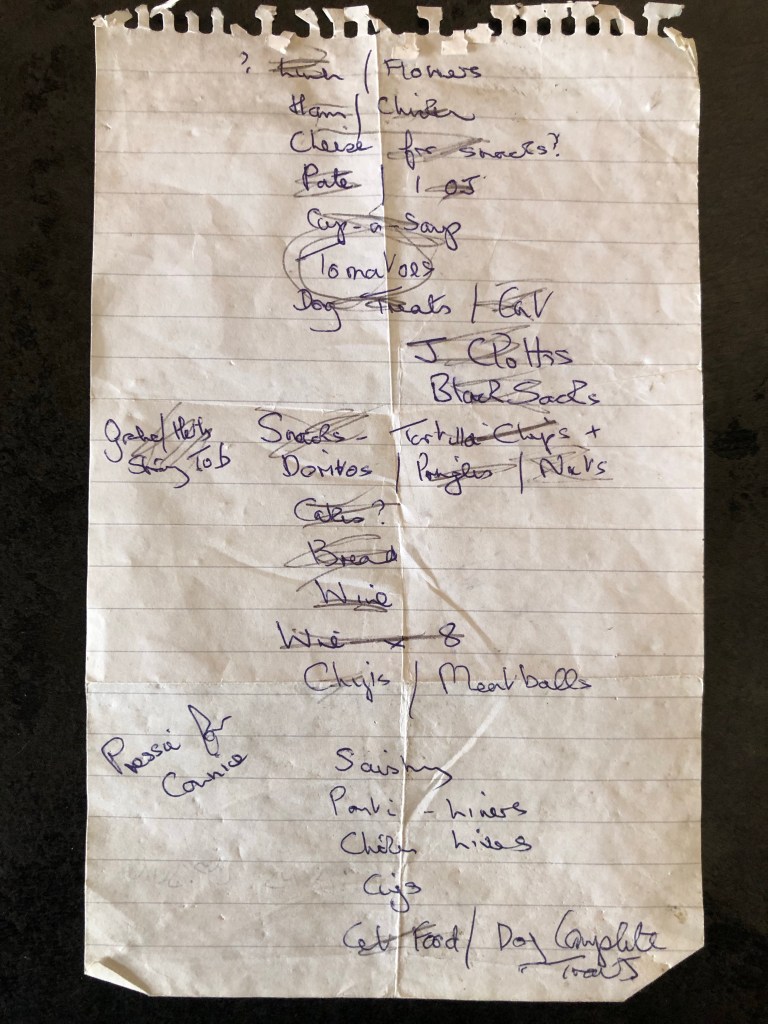 ? Lunch / Flowers
Ham / Chicken
Cheese for snacks?
Pate / 1 OJ
Cup-a-Soup
Tomatoes
Dog Treats / Cat
J Cloths
Black Sacks
Snacks - Tortilla Chips +
Doritos / Pringles / Nuts
Cakes?
Bread
Wine
Wine x 8
/ Meatballs
Pressie for
Connie
Panti-Liners
Chicken Livers
Cigs
Cat Food / Dog Complete